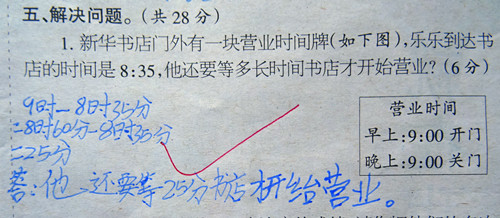 五、解决问题。(共28分)
1. 新华书店门外有一块营业时间牌(如下图),乐乐到达书
店的时间是8:35,他还要等多长时间书店才开始营业?(6分)
9时-8时35分
=8时60分-8时35分
=25分
答:他还要等25分书店开始营业。
营业时间
早上:9:00 开门
晚上:9:00 关门